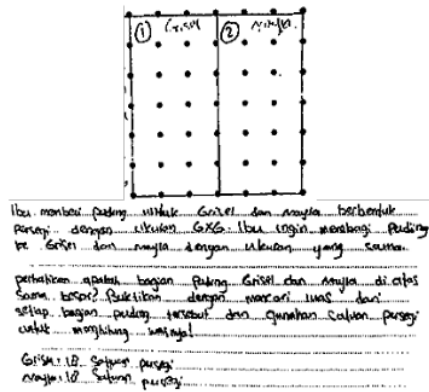 ① Grisel ② Nayla
Ibu memberi puding untuk Grisel dan Nayla berbentuk
persegi dengan ukuran 6x6. Ibu ingin membagi puding
ke Grisel dan nayla dengan ukuran yang sama.
perhatikan apakah bagian Puding Grisel dan Nayla di atas
sama besar? Buktikan dengan mencari luas dari
setiap bagian puding tersebut dan gunakan satuan persegi
untuk menghitung luasnya!
Grisel: 18 Satuan persegi
Nayla: 18 Satuan persegi